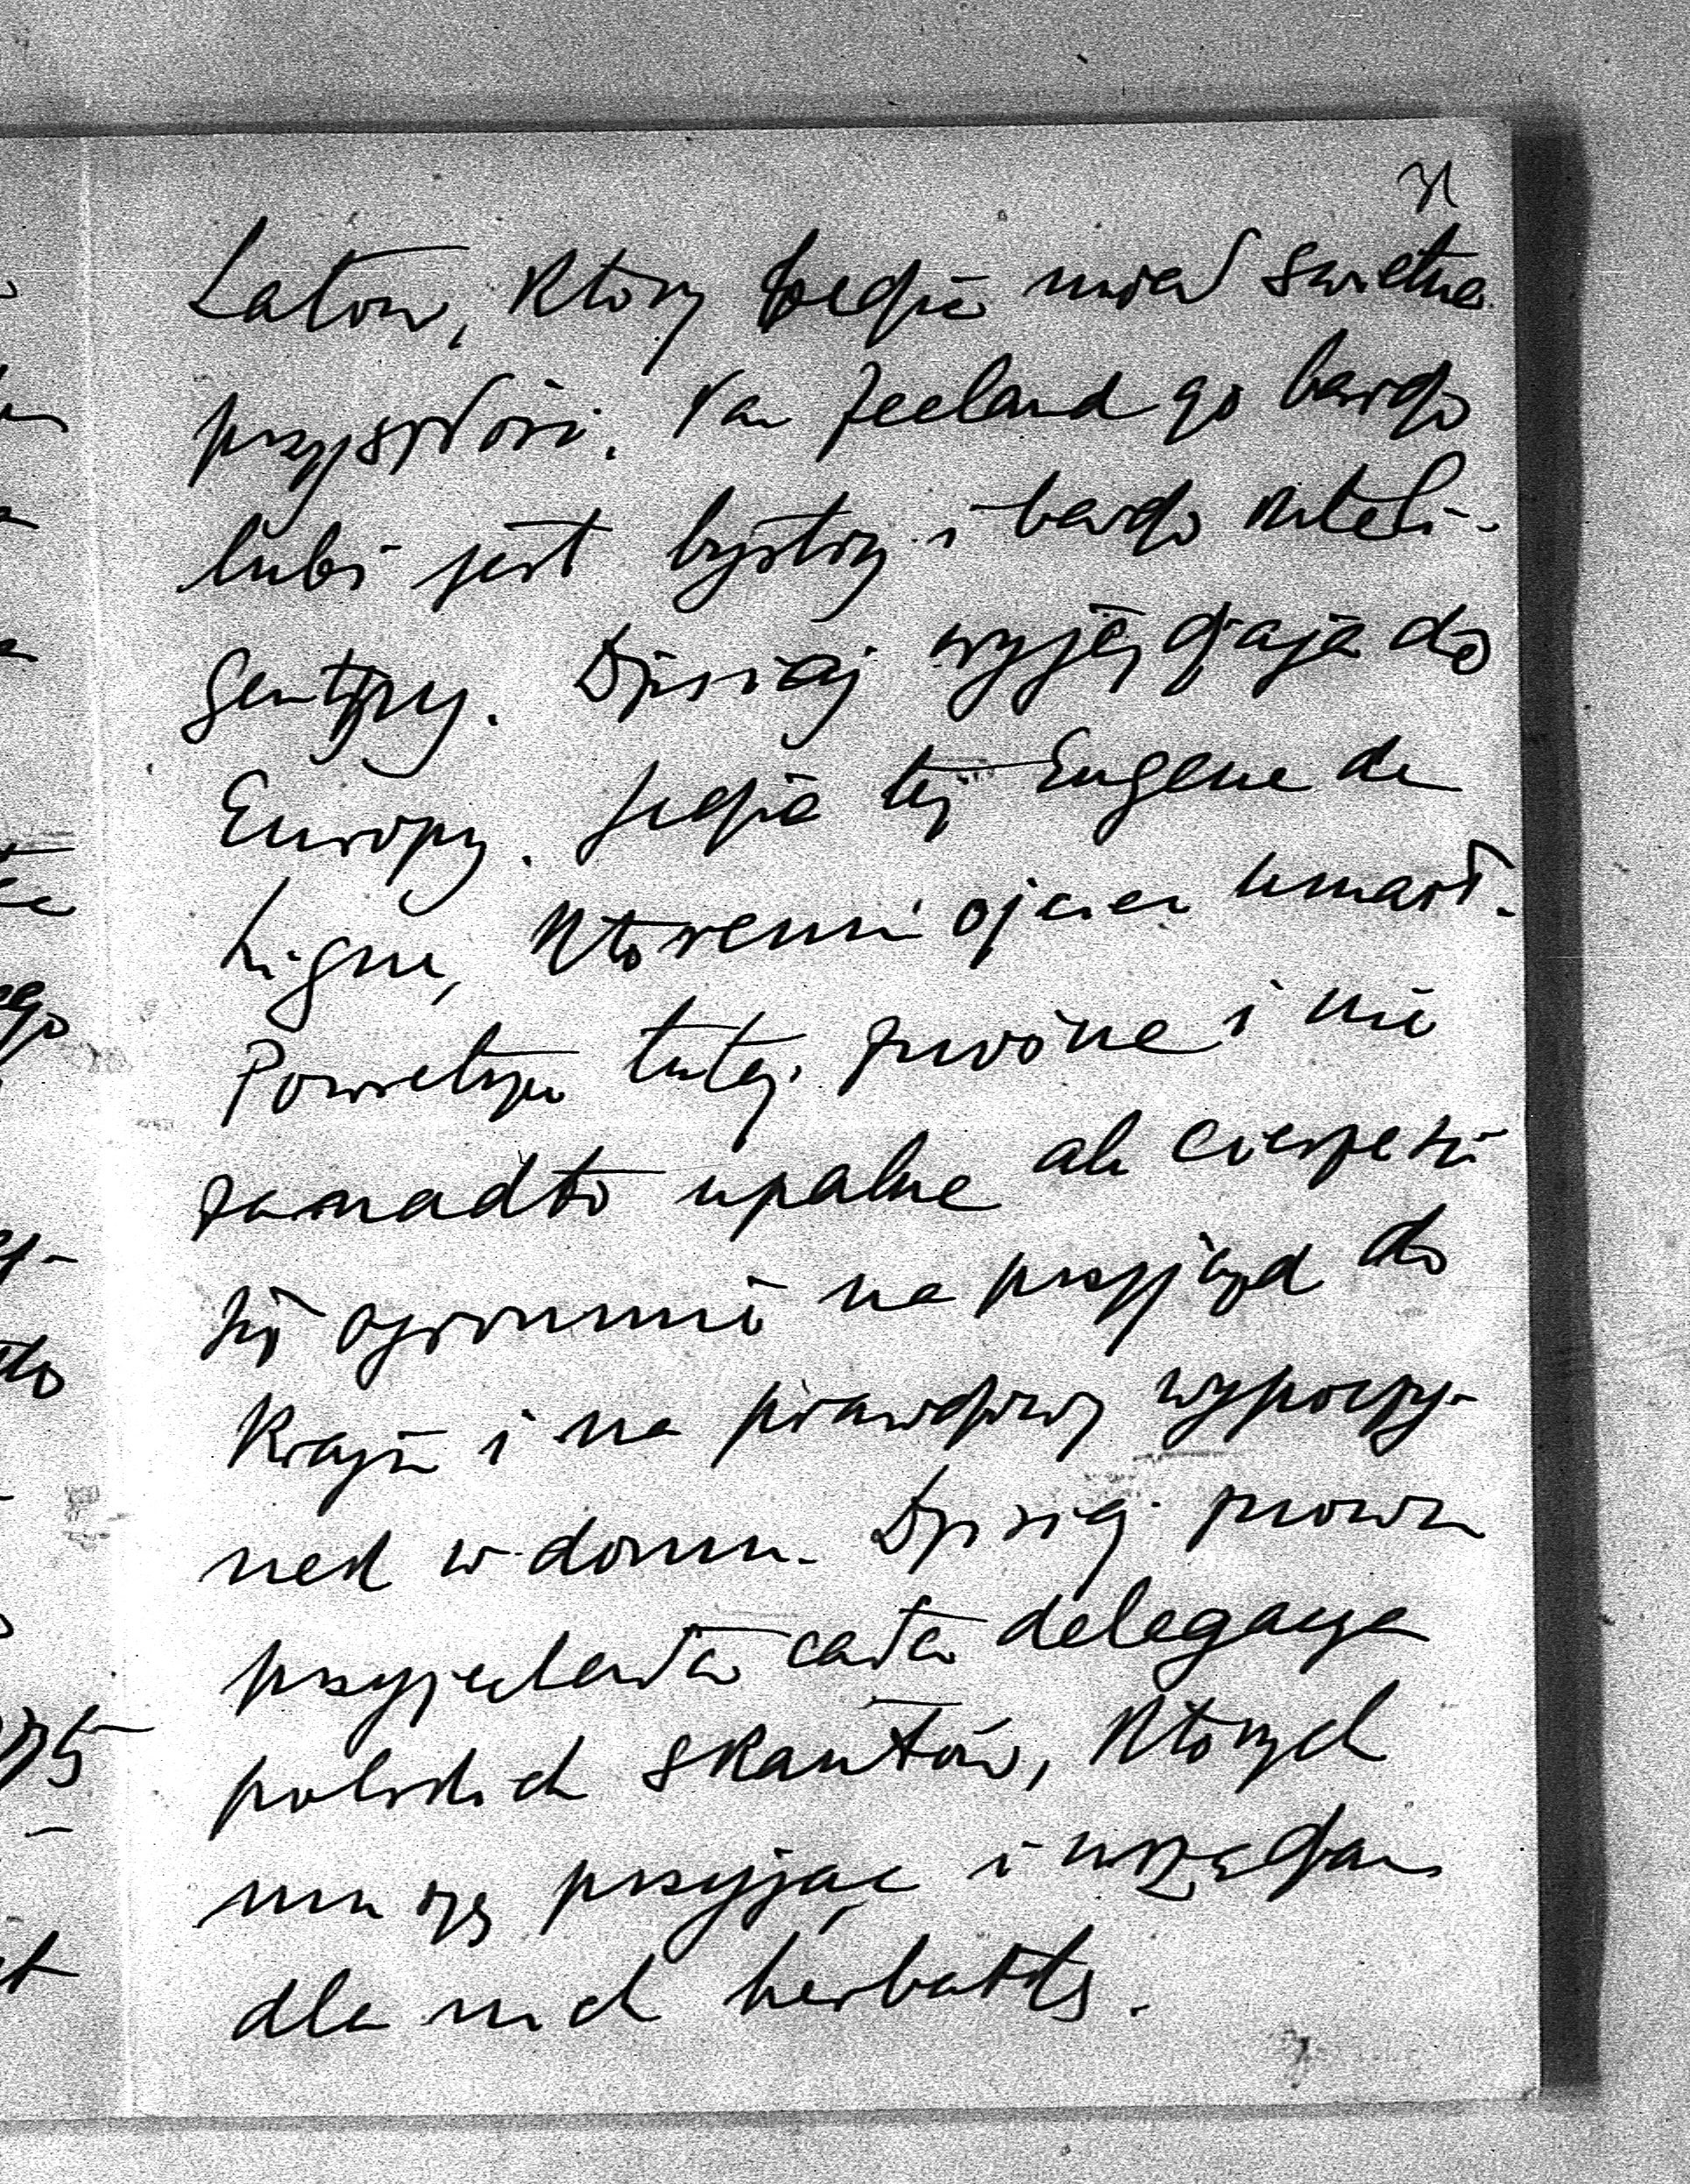 31
Latour, który będzie miał świetną
przyszłość. Van Zeeland go bardzo
lubi jest bystry i bardzo inteli-
gentny. Dzisiaj wyjeżdżają do
Europy. Jedzie też Eugene de
Ligne, któremu ojciec umarł.
Powietrze tutaj zdrowe i nie
zanadto upalne ale cieszę się
już ogromnie na przyjazd do
Kraju i na prawdziwy wypoczy-
nek w domu. Dzisiaj znowu
przyjechała cała delegacya
polskich skautów, których
muszę przyjąć i urządzam
dla nich herbatkę.